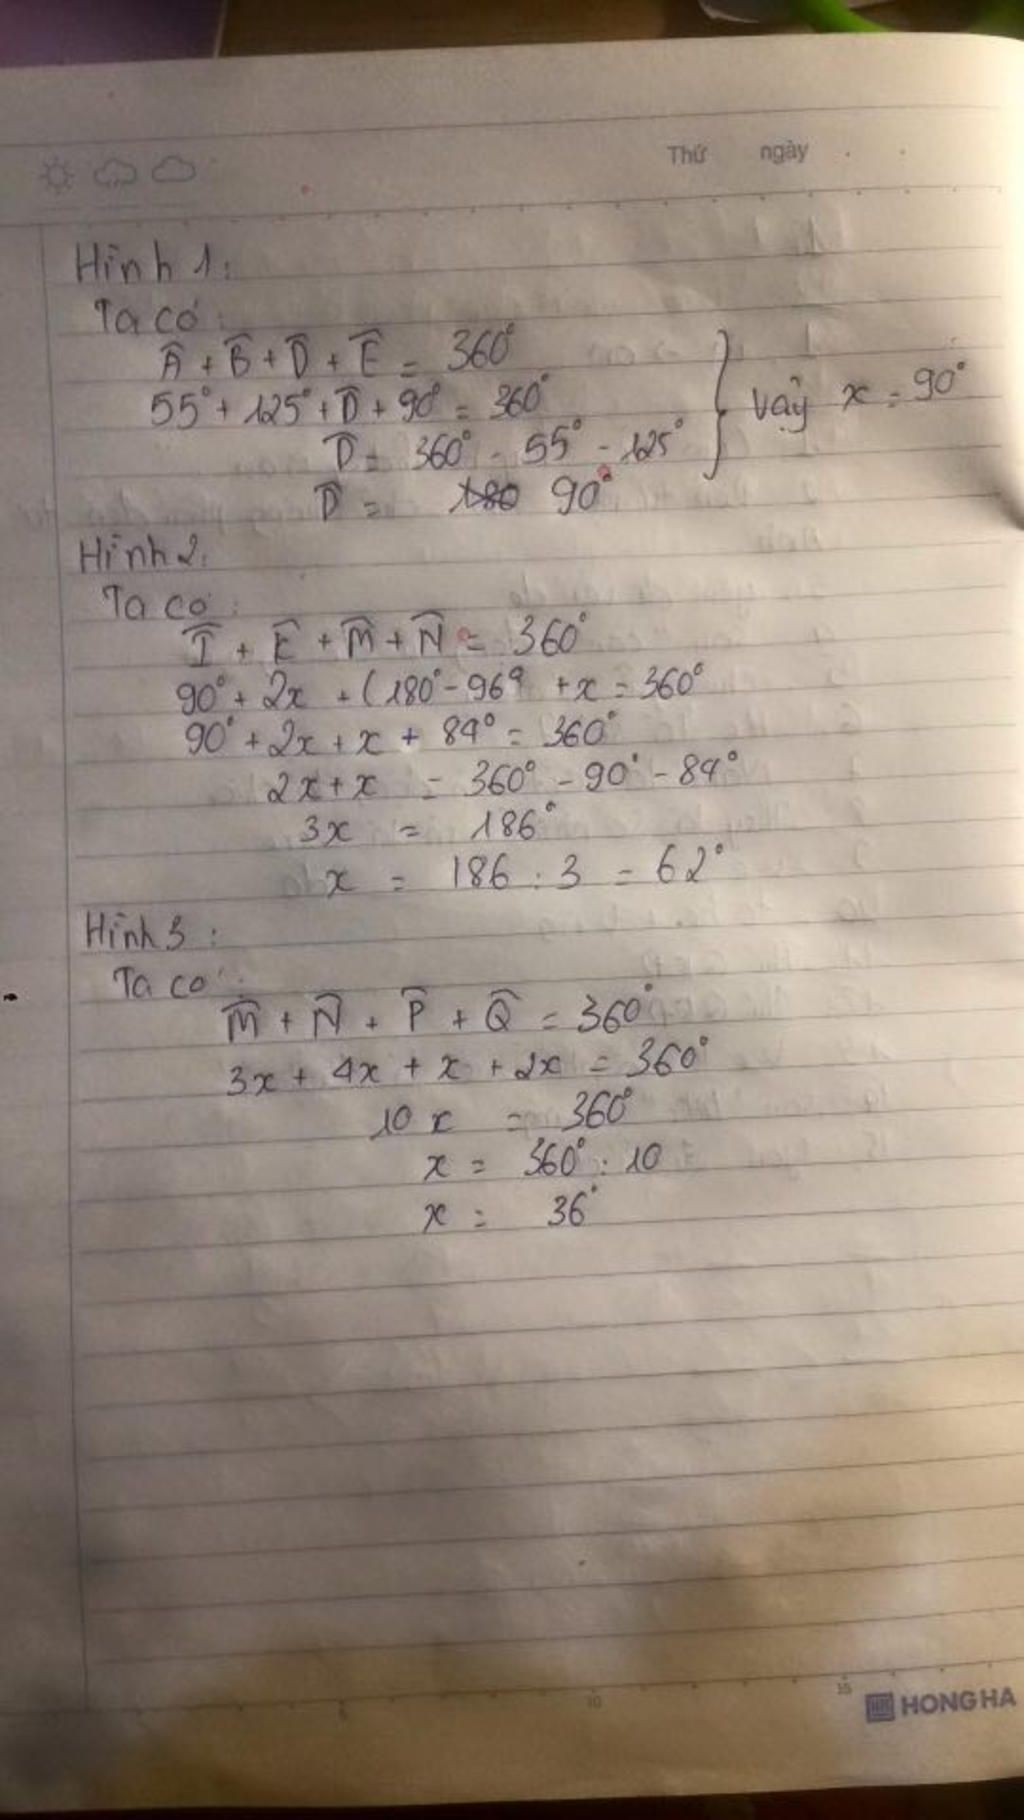 Thứ ngày
Hình 1:
Ta có:
Â + B̂ + D̂ + Ê = 360°
55° + 125° + D̂ + 90° = 360°
D̂ = 360° - 55° - 125°
D̂ = 180 90°
} Vậy x = 90°
Hình 2:
Ta có:
Î + K̂ + M̂ + N̂ = 360°
90° + 2x + (180° - 96° + x = 360°
90° + 2x + x + 84° = 360°
2x + x = 360° - 90° - 84°
3x = 186°
x = 186 : 3 = 62°
Hình 3:
Ta có:
M̂ + N̂ + P̂ + Q̂ = 360°
3x + 4x + x + 2x = 360°
10x = 360°
x = 360° : 10
x = 36°
5 10 15
HONG HA